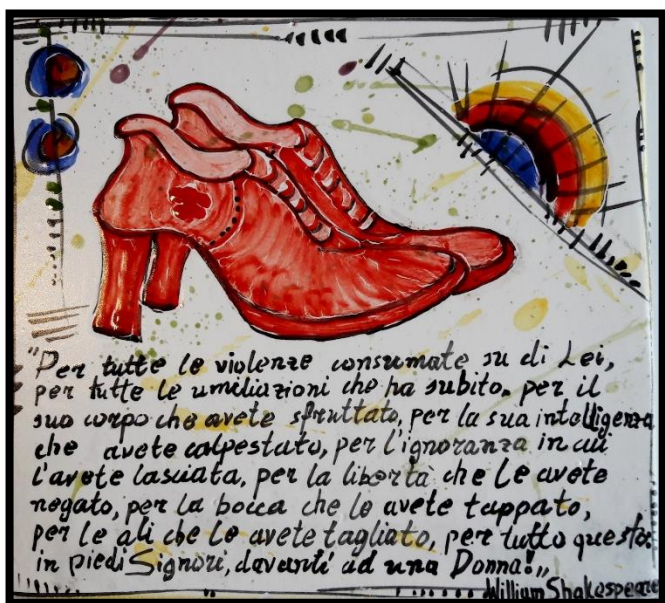 "Per tutte le violenze consumate su di Lei,
per tutte le umiliazioni che ha subito, per il
suo corpo che avete sfruttato, per la sua intelligenza
che avete calpestato, per l'ignoranza in cui
l'avete lasciata, per la libertà che le avete
negato, per la bocca che le avete tappato,
per le ali che le avete tagliato, per tutto questo:
in piedi Signori, davanti ad una Donna!„
William Shakespeare